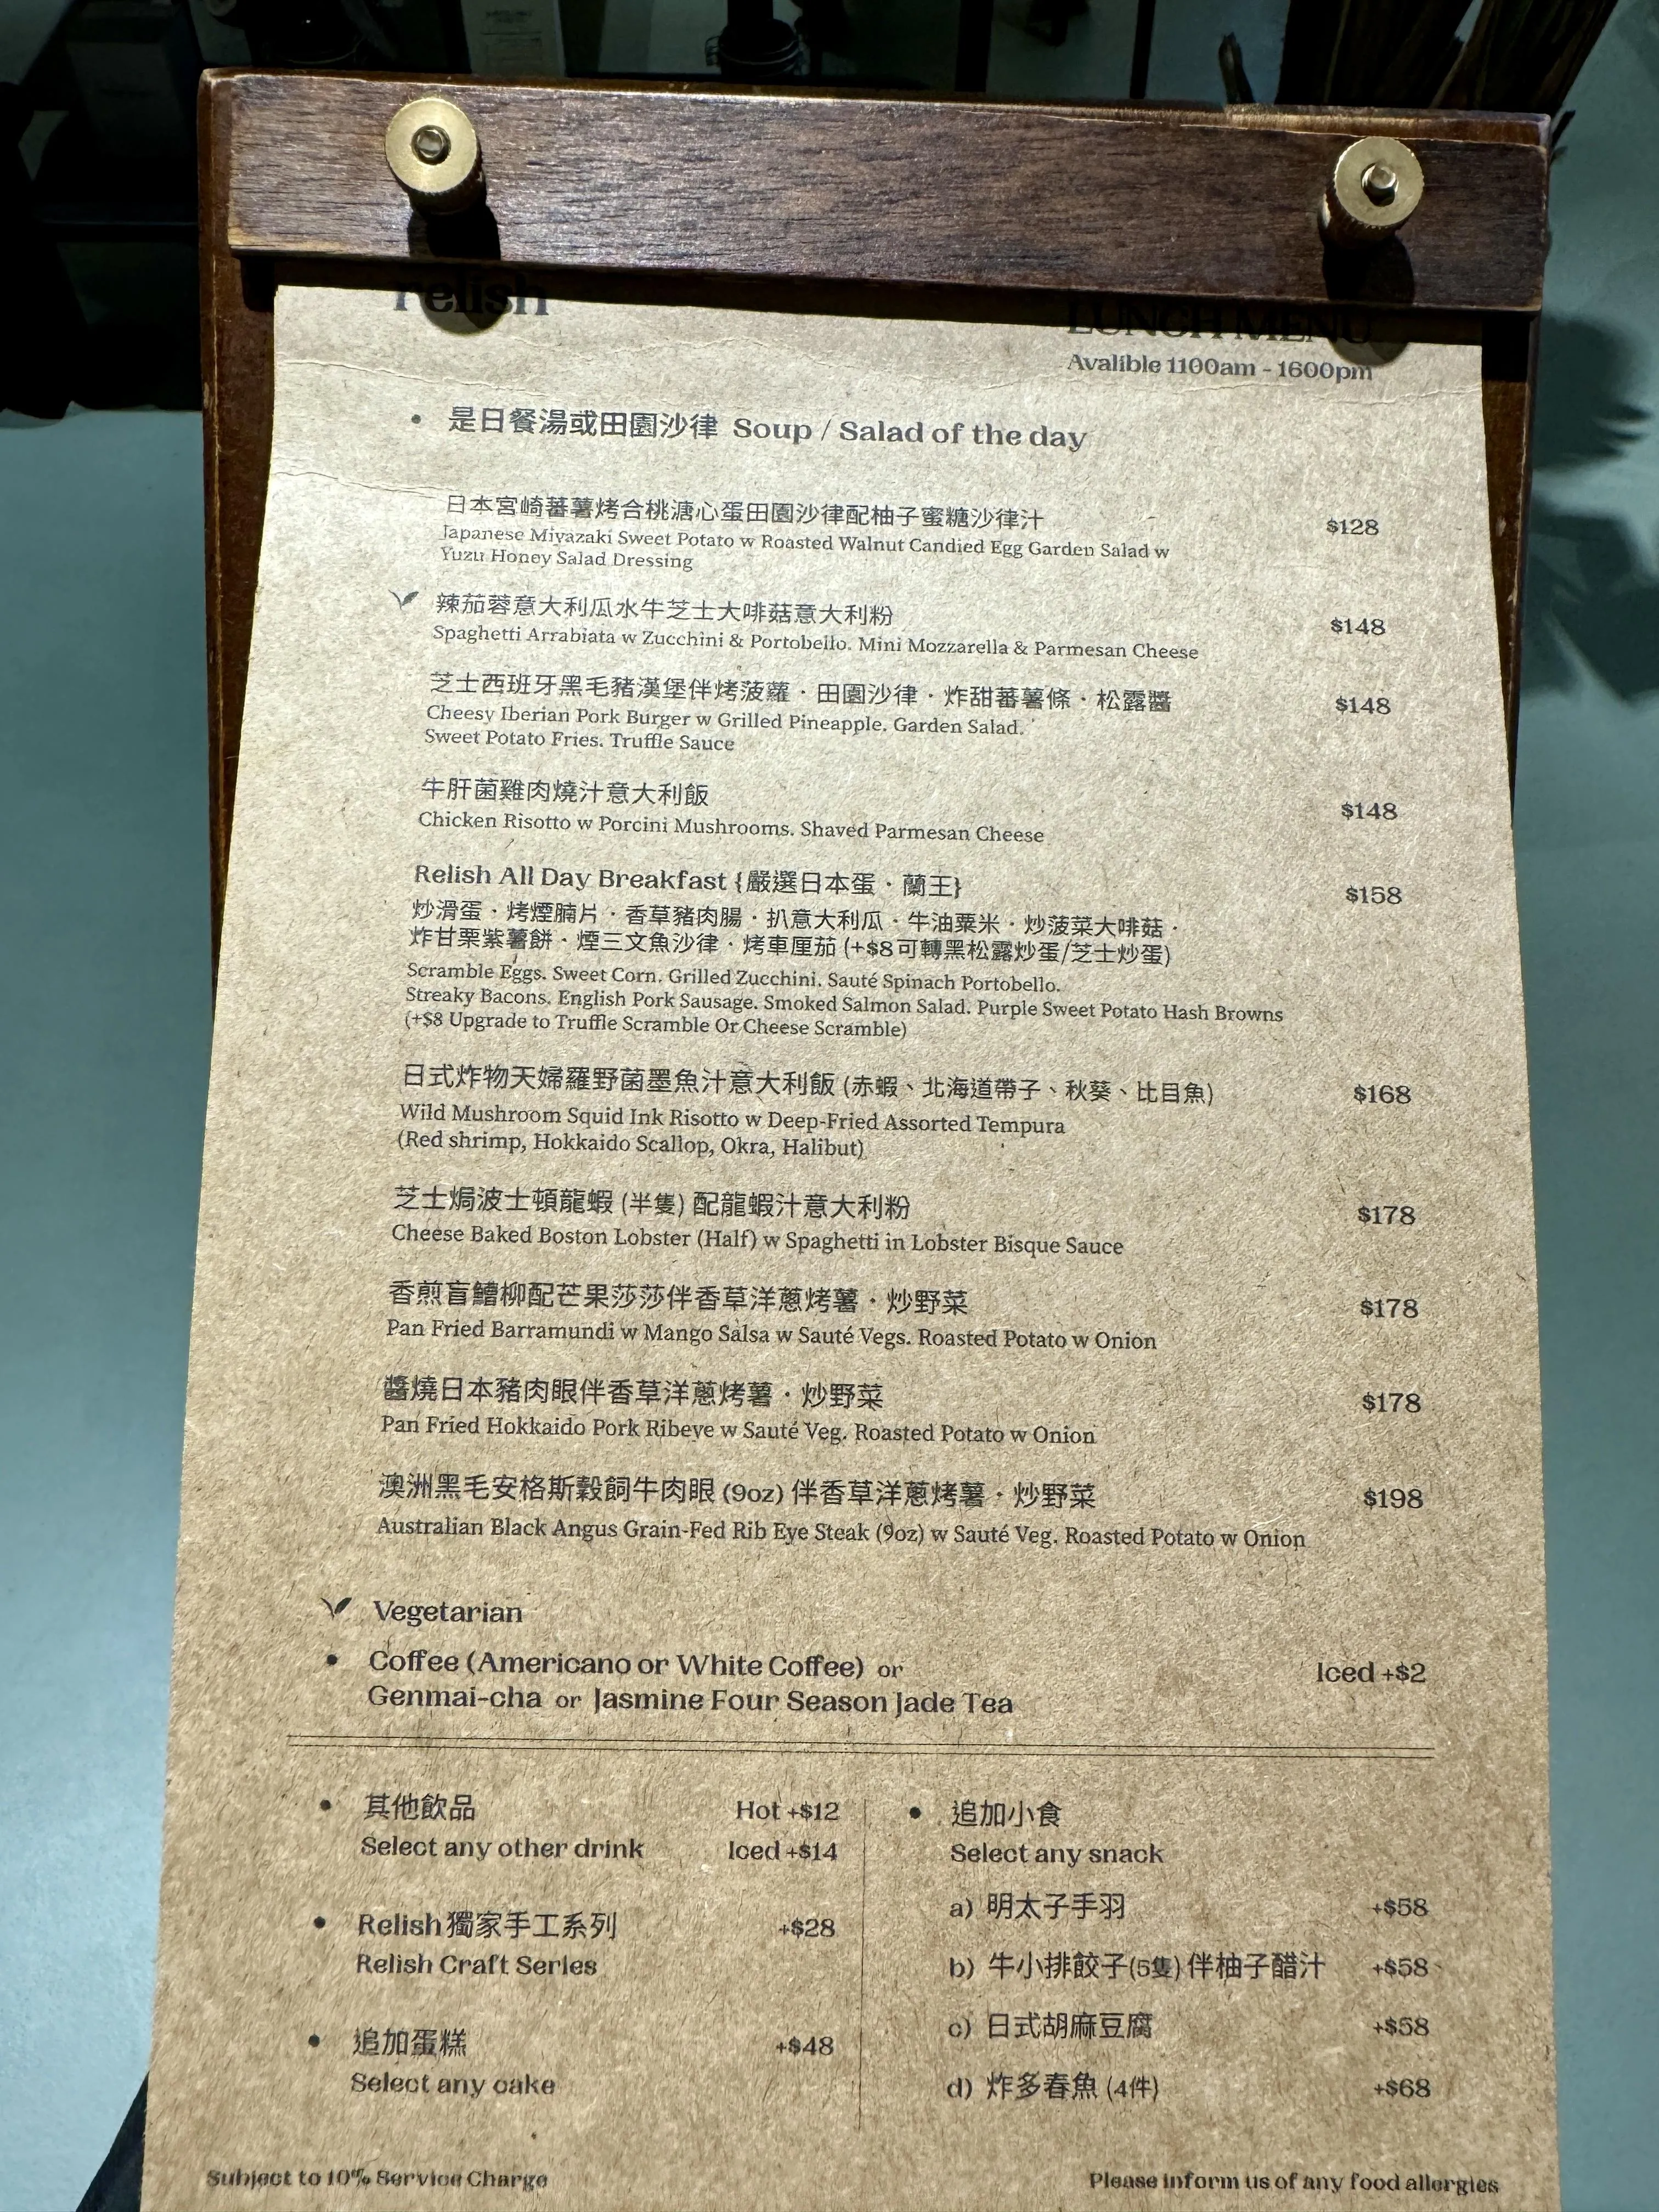 relish
LUNCH MENU
Avalible 1100am - 1600pm
• 是日餐湯或田園沙律 Soup / Salad of the day
日本宮崎蕃薯烤合桃溏心蛋田園沙律配柚子蜜糖沙律汁 $128
Japanese Miyazaki Sweet Potato w Roasted Walnut Candied Egg Garden Salad w
Yuzu Honey Salad Dressing
辣茄蓉意大利瓜水牛芝士大啡菇意大利粉 $148
Spaghetti Arrabiata w Zucchini & Portobello. Mini Mozzarella & Parmesan Cheese
芝士西班牙黑毛豬漢堡伴烤菠蘿・田園沙律・炸甜蕃薯條・松露醬 $148
Cheesy Iberian Pork Burger w Grilled Pineapple. Garden Salad.
Sweet Potato Fries. Truffle Sauce
牛肝菌雞肉燒汁意大利飯 $148
Chicken Risotto w Porcini Mushrooms. Shaved Parmesan Cheese
Relish All Day Breakfast {嚴選日本蛋・蘭王} $158
炒滑蛋・烤煙腩片・香草豬肉腸・扒意大利瓜・牛油粟米・炒菠菜大啡菇・
炸甘栗紫薯餅・煙三文魚沙律・烤車厘茄 (+$8可轉黑松露炒蛋/芝士炒蛋)
Scramble Eggs. Sweet Corn. Grilled Zucchini. Sauté Spinach Portobello.
Streaky Bacons. English Pork Sausage. Smoked Salmon Salad. Purple Sweet Potato Hash Browns
(+$8 Upgrade to Truffle Scramble Or Cheese Scramble)
日式炸物天婦羅野菌墨魚汁意大利飯 (赤蝦、北海道帶子、秋葵、比目魚) $168
Wild Mushroom Squid Ink Risotto w Deep-Fried Assorted Tempura
(Red shrimp, Hokkaido Scallop, Okra, Halibut)
芝士焗波士頓龍蝦 (半隻) 配龍蝦汁意大利粉 $178
Cheese Baked Boston Lobster (Half) w Spaghetti in Lobster Bisque Sauce
香煎盲鰽柳配芒果莎莎伴香草洋蔥烤薯・炒野菜 $178
Pan Fried Barramundi w Mango Salsa w Sauté Vegs. Roasted Potato w Onion
醬燒日本豬肉眼伴香草洋蔥烤薯・炒野菜 $178
Pan Fried Hokkaido Pork Ribeye w Sauté Veg. Roasted Potato w Onion
澳洲黑毛安格斯穀飼牛肉眼 (9oz) 伴香草洋蔥烤薯・炒野菜 $198
Australian Black Angus Grain-Fed Rib Eye Steak (9oz) w Sauté Veg. Roasted Potato w Onion
Vegetarian
• Coffee (Americano or White Coffee) or Iced +$2
Genmai-cha or Jasmine Four Season Jade Tea
• 其他飲品 Hot +$12
Select any other drink Iced +$14
• Relish獨家手工系列 +$28
Relish Craft Series
• 追加蛋糕 +$48
Select any cake
• 追加小食
Select any snack
a) 明太子手羽 +$58
b) 牛小排餃子(5隻) 伴柚子醋汁 +$58
c) 日式胡麻豆腐 +$58
d) 炸多春魚 (4件) +$68
Subject to 10% Service Charge
Please inform us of any food allergies